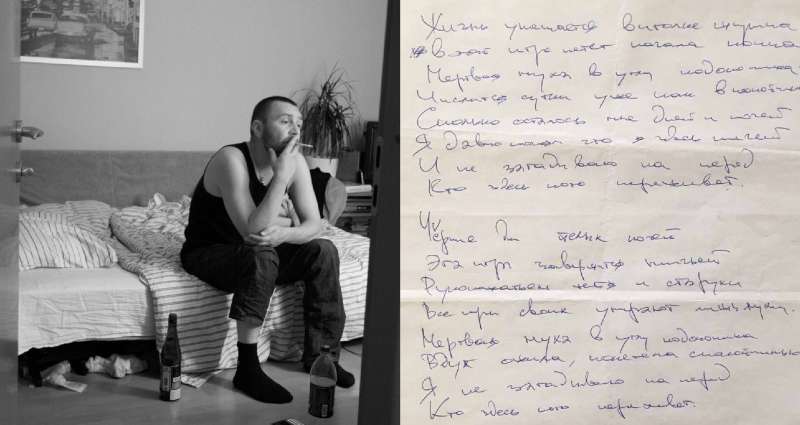 Жизнь умещается в иголке шприца
В этой игре нет начала конца
Мертвая муха в углу подоконника
Числятся сутки уже как в
Сколько осталось мне дней и ночей
Я давно понял что я здесь ничей
И не загадываю на перед
Кто здесь кого переживет.
Черные дни темных ночей
Эта игра завершится ничьей
Рукопожатьем и старухи
Все при своих умирают лишь мухи.
Мертвая муха в углу подоконника
Вдруг ожила, полетела
Я не загадываю на перед
Кто здесь кого переживет.